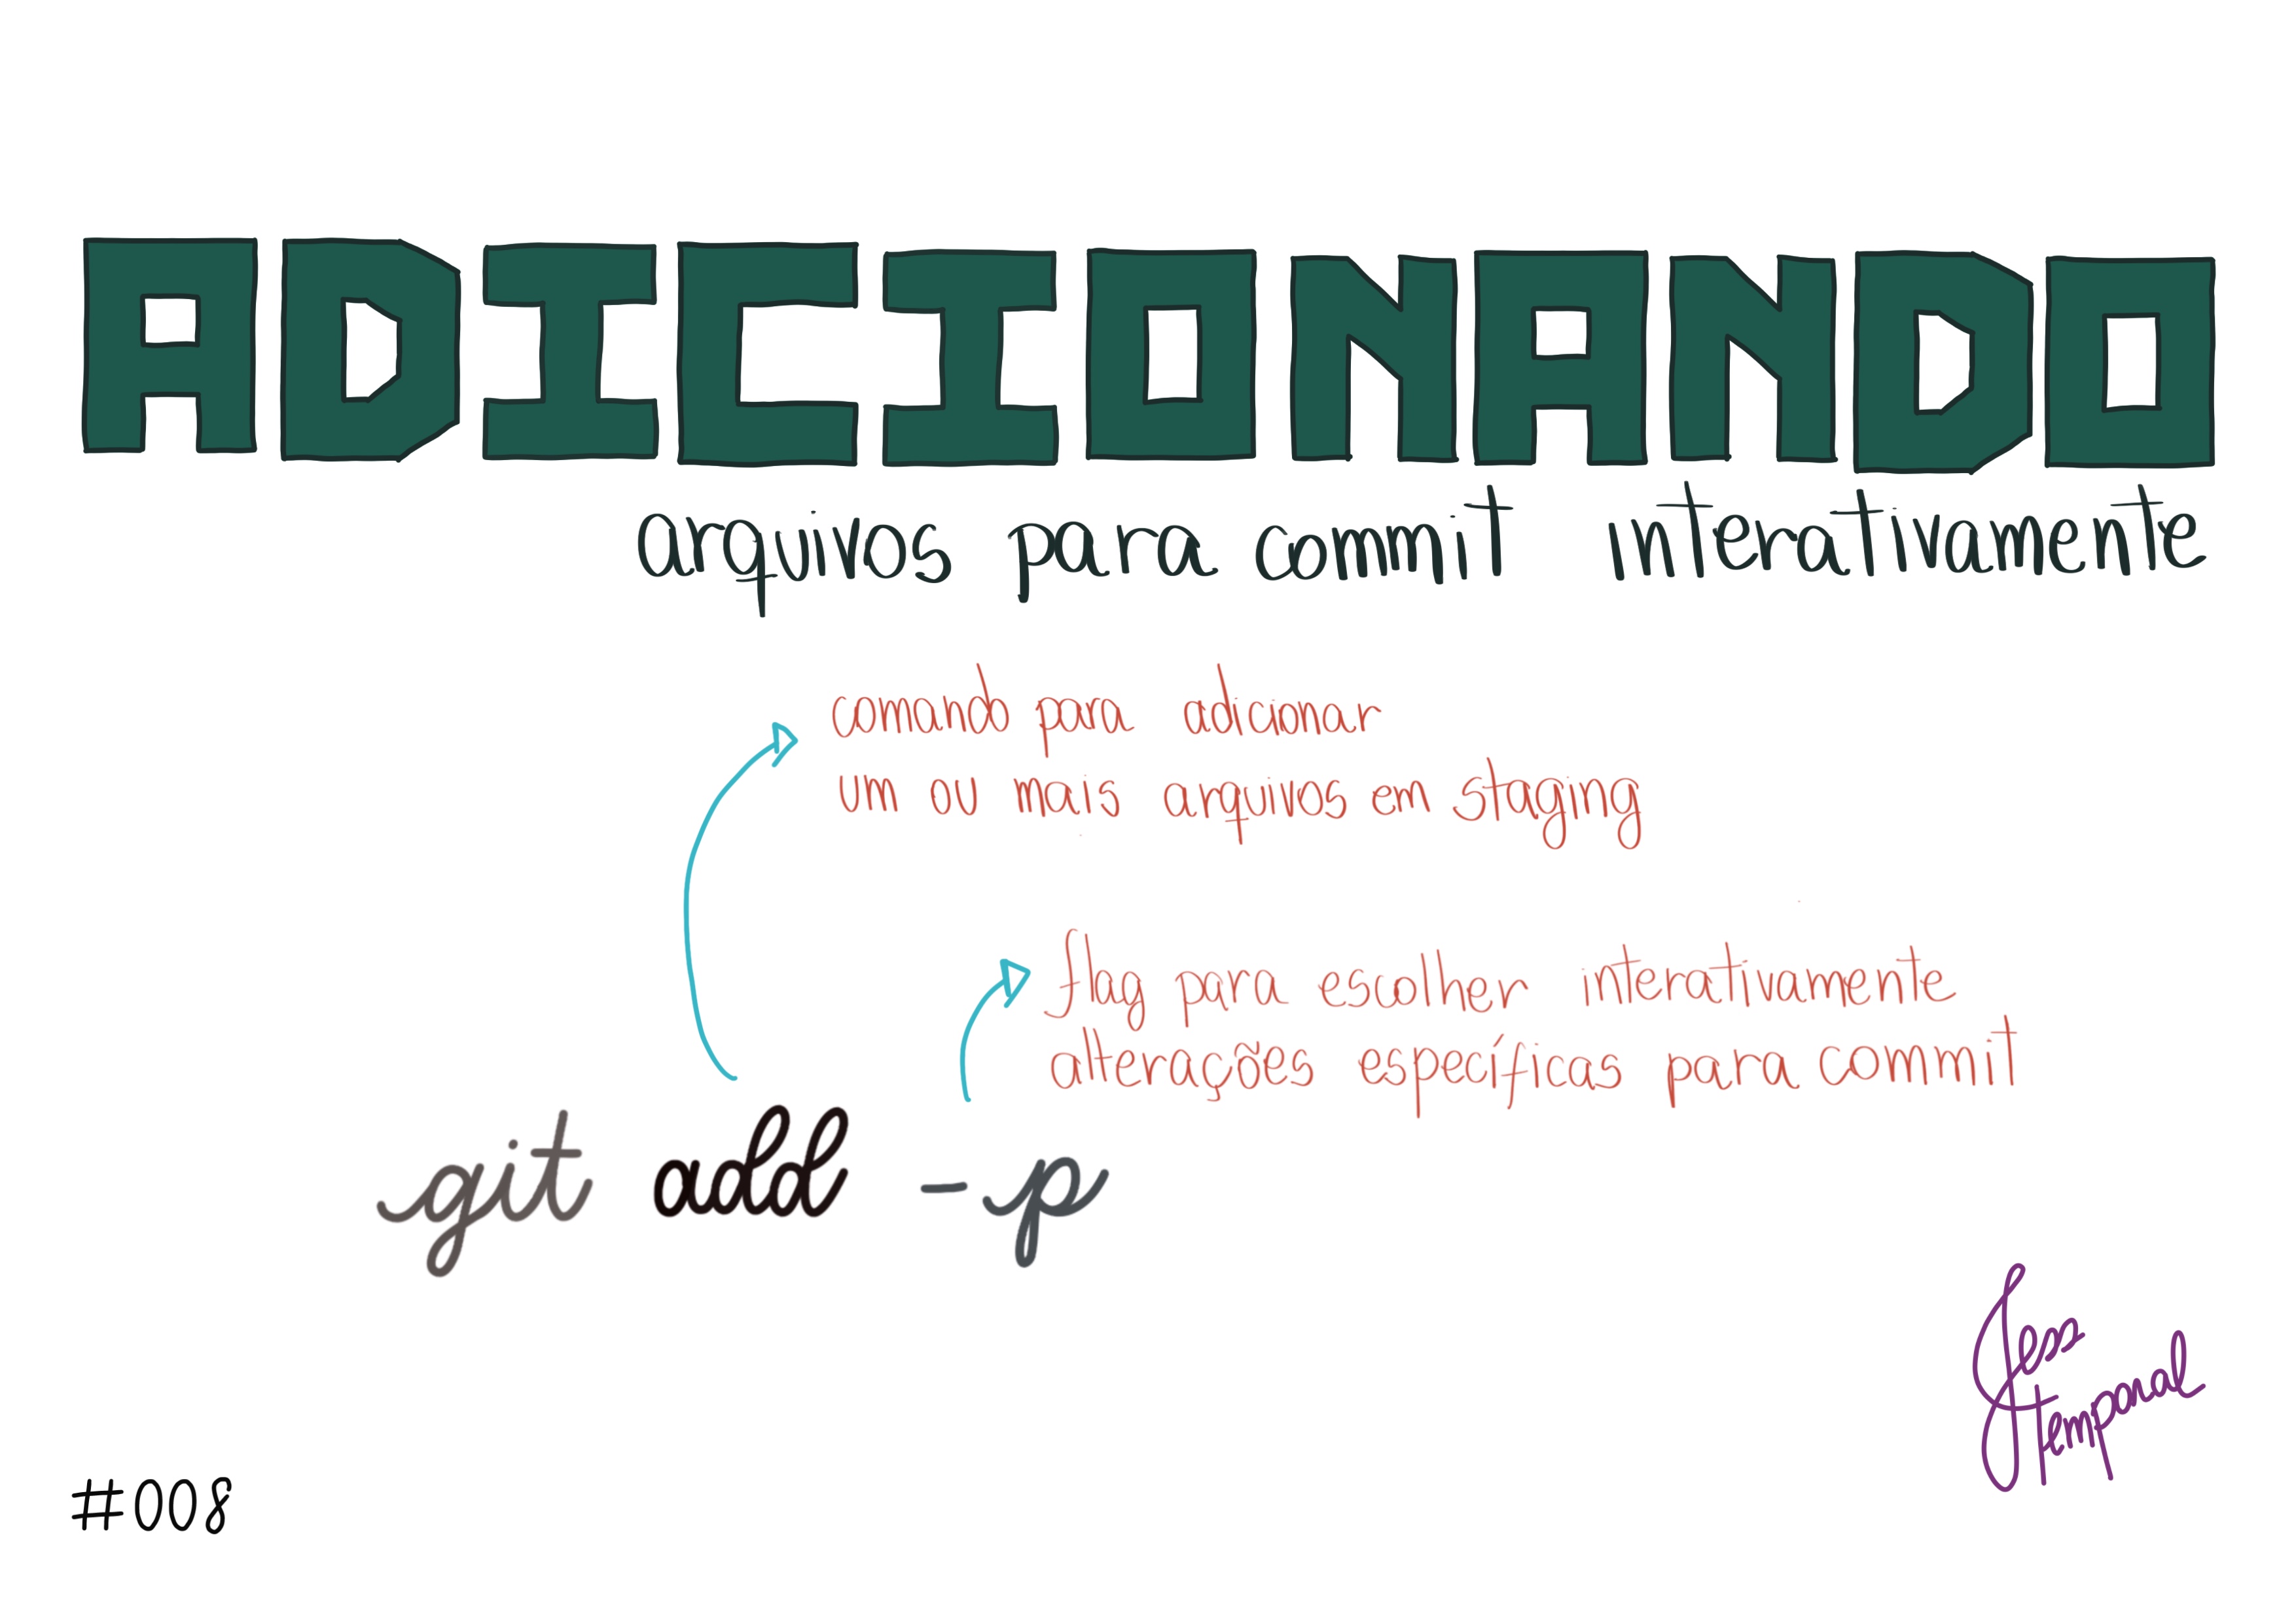 ADICIONANDO
arquivos para commit interativamente
comando para adicionar
um ou mais arquivos em staging
flag para escolher interativamente
alterações específicas para commit
git add -p
Jess
temporal
#008